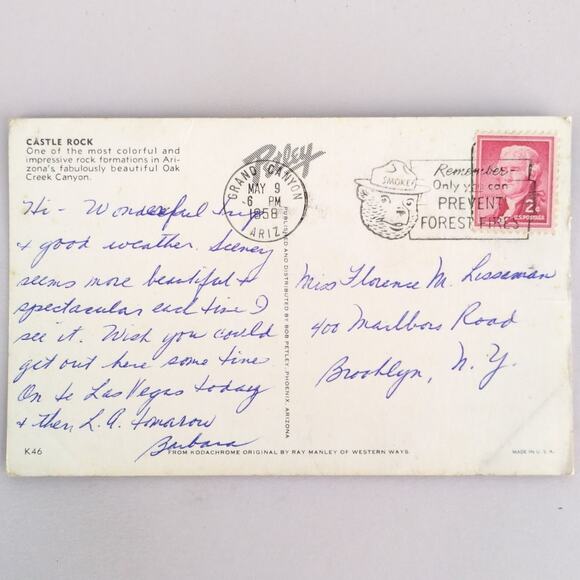 CASTLE ROCK
One of the most colorful and
impressive rock formations in Ari-
zona's fabulously beautiful Oak
Creek Canyon.
Petley
GRAND CANYON
MAY 9
6 PM
1958
ARIZ.
SMOKEY
Remember-
Only you can
PREVENT
FOREST FIRES
2¢
U.S. POSTAGE
Hi - Wonderful trip
& good weather. Scenery
seems more beautiful &
spectacular each time I
see it. Wish you could
get out here some time
On to Las Vegas today
& then L.A. tomorrow
Barbara
Miss Florence M. Lisseman
400 Marlboro Road
Brooklyn, N.Y.
PUBLISHED AND DISTRIBUTED BY BOB PETLEY, PHOENIX, ARIZONA
K46
FROM KODACHROME ORIGINAL BY RAY MANLEY OF WESTERN WAYS.
MADE IN U.S.A.